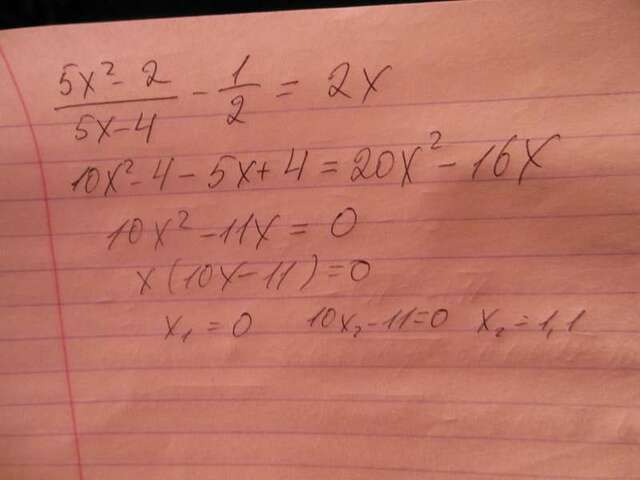 (5x² - 2)/(5x - 4) - 1/2 = 2x
10x² - 4 - 5x + 4 = 20x² - 16x
10x² - 11x = 0
x(10x - 11) = 0
x₁ = 0 10x₂ - 11 = 0 x₂ = 1,1